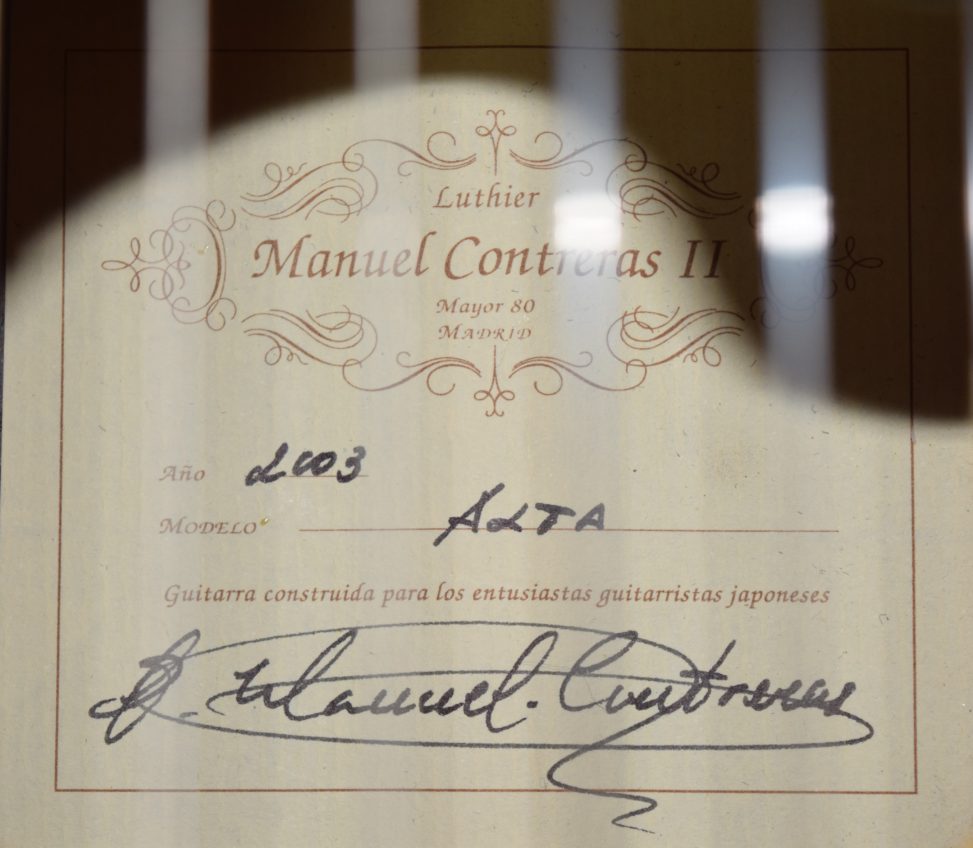 Luthier
Manuel Contreras II
Mayor 80
MADRID
Año 2003
MODELO ALTA
Guitarra construida para los entusiastas guitarristas japoneses
P. Manuel. Contreras